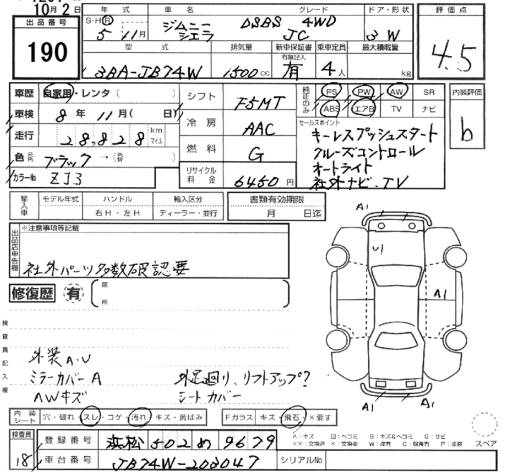 10月2日
出品番号
190
年式 車名 グレード ドア・形状 評価点
S・H・R
5年 11月 ジムニーシエラ DSBS 4WD JC 3W
4.5
型式 排気量 新車保証書 乗車定員 最大積載量
有無記入
3BA-JB74W 1500cc 有 4人 kg
車歴 自家用・レンタ( )
車検 8年11月(日)
走行 28,828 km マイル
色 元色 ブラック→(替色 )
カラーNo ZJ3
シフト F5MT
冷房 AAC
燃料 G
リサイクル料金 6450円
純正のみ PS PW AW SR
ABS エアB TV ナビ
セールスポイント
キーレスプッシュスタート
クルーズコントロール
オートライト
社外ナビ・TV
内装評価
b
輸入車 モデル年式 ハンドル 輸入区分
右H・左H ディーラー・並行
書類有効期限
月 日迄
出品店申告欄
※注意事項等記載
社外パーツ多数確認要
修復歴 有 箇所
検査員記入欄
外装A.U
ミラーカバーA
AWキズ
外足廻り、リフトアップ?
シートカバー
A1 A1
U1
A1 A1
A1
内装シート 穴・破れ・スレ・コゲ・汚れ・キズ・黄ばみ
Fガラス キズ・飛石・×要す
検査員
18
登録番号 浜松 502 め 9679
車台番号 JB74W-203047
シリアルNo
スペア